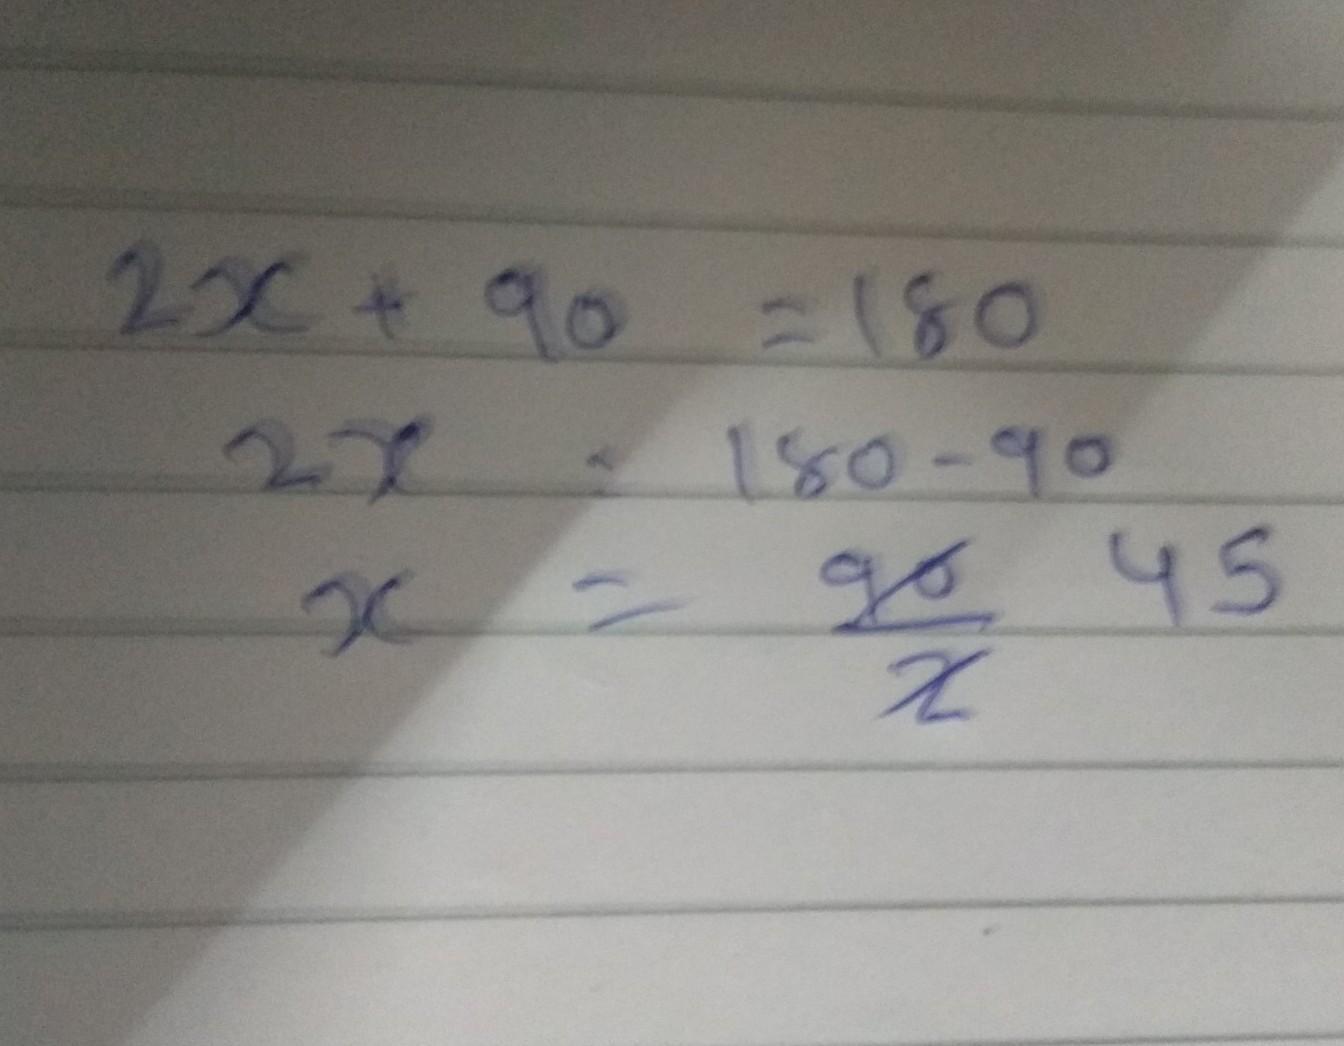 2x + 90 = 180
2x = 180 - 90
x = 90/2 45